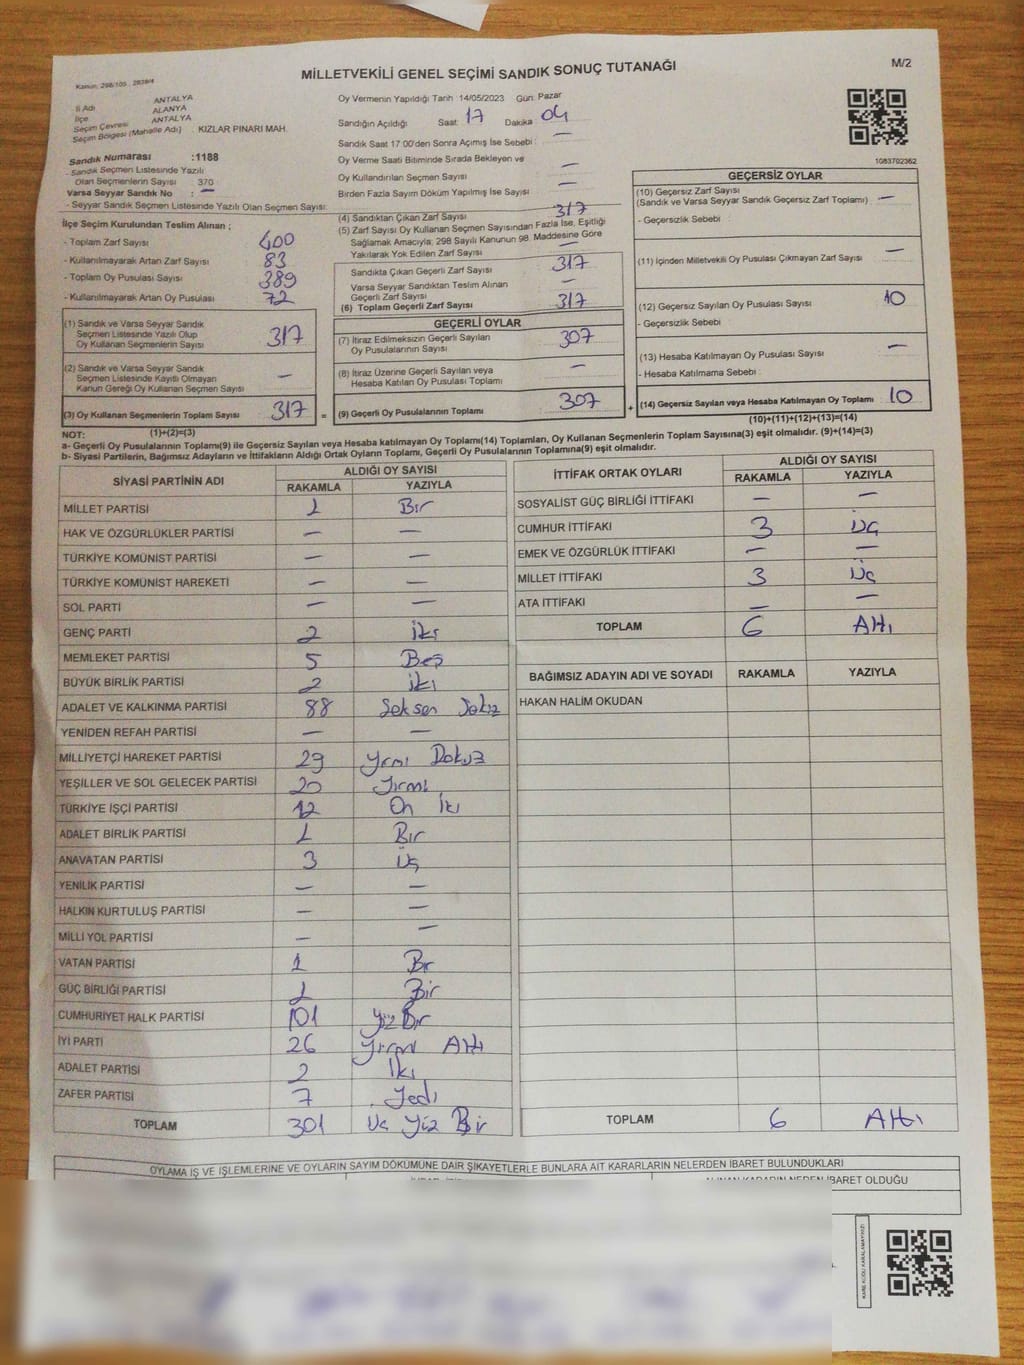 MİLLETVEKİLİ GENEL SEÇİMİ SANDIK SONUÇ TUTANAĞI
M/2
İl Adı ANTALYA
İlçe ALANYA
Seçim Çevresi ANTALYA
Seçim Bölgesi (Mahalle Adı) : KIZLAR PINARI MAH.
Sandık Numarası :1188
- Sandık Seçmen Listesinde Yazılı
Olan Seçmenlerin Sayısı : 370
Varsa Seyyar Sandık No : —
- Seyyar Sandık Seçmen Listesinde Yazılı Olan Seçmen Sayısı:
Oy Vermenin Yapıldığı Tarih :14/05/2023 Gün: Pazar
Sandığın Açıldığı Saat: 17 Dakika: 04
Sandık Saat 17:00'den Sonra Açımış İse Sebebi : —
Oy Verme Saati Bitiminde Sırada Bekleyen ve
Oy Kullandırılan Seçmen Sayısı —
Birden Fazla Sayım Döküm Yapılmış İse Sayısı —
1083702362
İlçe Seçim Kurulundan Teslim Alınan ;
- Toplam Zarf Sayısı 400
- Kullanılmayarak Artan Zarf Sayısı 83
- Toplam Oy Pusulası Sayısı 389
- Kullanılmayarak Artan Oy Pusulası 72
(1) Sandık ve Varsa Seyyar Sandık
Seçmen Listesinde Yazılı Olup
Oy Kullanan Seçmenlerin Sayısı 317
(2) Sandık ve Varsa Seyyar Sandık
Seçmen Listesinde Kayıtlı Olmayan
Kanun Gereği Oy Kullanan Seçmen Sayısı —
(3) Oy Kullanan Seçmenlerin Toplam Sayısı 317 =
(1)+(2)=(3)
(4) Sandıktan Çıkan Zarf Sayısı 317
(5) Zarf Sayısı Oy Kullanan Seçmen Sayısından Fazla İse, Eşitliği
Sağlamak Amacıyla; 298 Sayılı Kanunun 98. Maddesine Göre
Yakılarak Yok Edilen Zarf Sayısı —
Sandıkta Çıkan Geçerli Zarf Sayısı 317
Varsa Seyyar Sandıktan Teslim Alınan
Geçerli Zarf Sayısı —
(6) Toplam Geçerli Zarf Sayısı 317
GEÇERLİ OYLAR
(7) İtiraz Edilmeksizin Geçerli Sayılan
Oy Pusulalarının Sayısı 307
(8) İtiraz Üzerine Geçerli Sayılan veya
Hesaba Katılan Oy Pusulası Toplamı —
(9) Geçerli Oy Pusulalarının Toplamı 307 +
GEÇERSİZ OYLAR
(10) Geçersiz Zarf Sayısı
(Sandık ve Varsa Seyyar Sandık Geçersiz Zarf Toplamı) —
- Geçersizlik Sebebi :
(11) İçinden Milletvekili Oy Pusulası Çıkmayan Zarf Sayısı —
(12) Geçersiz Sayılan Oy Pusulası Sayısı 10
- Geçersizlik Sebebi
(13) Hesaba Katılmayan Oy Pusulası Sayısı —
- Hesaba Katılmama Sebebi :
(14) Geçersiz Sayılan veya Hesaba Katılmayan Oy Toplamı 10
(10)+(11)+(12)+(13)=(14)
NOT:
a- Geçerli Oy Pusulalarının Toplamı(9) ile Geçersiz Sayılan veya Hesaba katılmayan Oy Toplamı(14) Toplamları, Oy Kullanan Seçmenlerin Toplam Sayısına(3) eşit olmalıdır. (9)+(14)=(3)
b- Siyasi Partilerin, Bağımsız Adayların ve İttifakların Aldığı Ortak Oyların Toplamı, Geçerli Oy Pusulalarının Toplamına(9) eşit olmalıdır.
SİYASİ PARTİNİN ADI ALDIĞI OY SAYISI
RAKAMLA YAZIYLA
MİLLET PARTİSİ 1 Bir
HAK VE ÖZGÜRLÜKLER PARTİSİ — —
TÜRKİYE KOMÜNİST PARTİSİ — —
TÜRKİYE KOMÜNİST HAREKETİ — —
SOL PARTİ — —
GENÇ PARTİ 2 İki
MEMLEKET PARTİSİ 5 Beş
BÜYÜK BİRLİK PARTİSİ 2 iki
ADALET VE KALKINMA PARTİSİ 88 Seksen Sekiz
YENİDEN REFAH PARTİSİ — —
MİLLİYETÇİ HAREKET PARTİSİ 29 Yirmi Dokuz
YEŞİLLER VE SOL GELECEK PARTİSİ 20 Yirmi
TÜRKİYE İŞÇİ PARTİSİ 12 On İki
ADALET BİRLİK PARTİSİ 1 Bir
ANAVATAN PARTİSİ 3 Üç
YENİLİK PARTİSİ — —
HALKIN KURTULUŞ PARTİSİ — —
MİLLİ YOL PARTİSİ — —
VATAN PARTİSİ 1 Bir
GÜÇ BİRLİĞİ PARTİSİ 1 Bir
CUMHURİYET HALK PARTİSİ 101 Yüz Bir
İYİ PARTİ 26 Yirmi Altı
ADALET PARTİSİ 2 İki
ZAFER PARTİSİ 7 Yedi
TOPLAM 301 Üç Yüz Bir
İTTİFAK ORTAK OYLARI ALDIĞI OY SAYISI
RAKAMLA YAZIYLA
SOSYALİST GÜÇ BİRLİĞİ İTTİFAKI — —
CUMHUR İTTİFAKI 3 Üç
EMEK VE ÖZGÜRLÜK İTTİFAKI — —
MİLLET İTTİFAKI 3 Üç
ATA İTTİFAKI — —
TOPLAM 6 Altı
BAĞIMSIZ ADAYIN ADI VE SOYADI RAKAMLA YAZIYLA
HAKAN HALİM OKUDAN
TOPLAM 6 Altı
OYLAMA İŞ VE İŞLEMLERİNE VE OYLARIN SAYIM DÖKÜMÜNE DAİR ŞİKAYETLERLE BUNLARA AİT KARARLARIN NELERDEN İBARET BULUNDUKLARI
ALINAN KARARIN NEDEN İBARET OLDUĞU